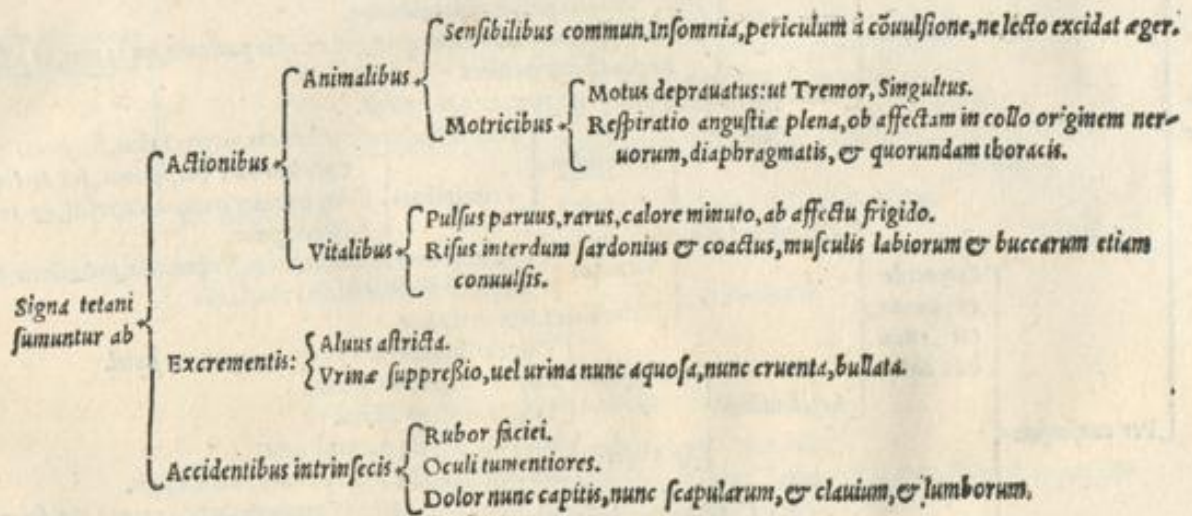 Senſibilibus commun. Inſomnia, periculum à cõuulſione, ne lecto excidat æger.
Animalibus
Motricibus
Motus deprauatus: ut Tremor, Singultus.
Reſpiratio anguſtiæ plena, ob affectam in collo originem ner-
uorum, diaphragmatis, & quorundam thoracis.
Actionibus
Vitalibus
Pulſus paruus, rarus, calore minuto, ab affectu frigido.
Riſus interdum ſardonius & coactus, muſculis labiorum & buccarum etiam
conuulſis.
Signa tetani
ſumuntur ab
Excrementis:
Aluus aſtricta.
Vrinæ ſuppreſsio, uel urina nunc aquoſa, nunc cruenta, bullata.
Accidentibus intrinſecis
Rubor faciei.
Oculi tumentiores.
Dolor nunc capitis, nunc ſcapularum, & clauium, & lumborum.